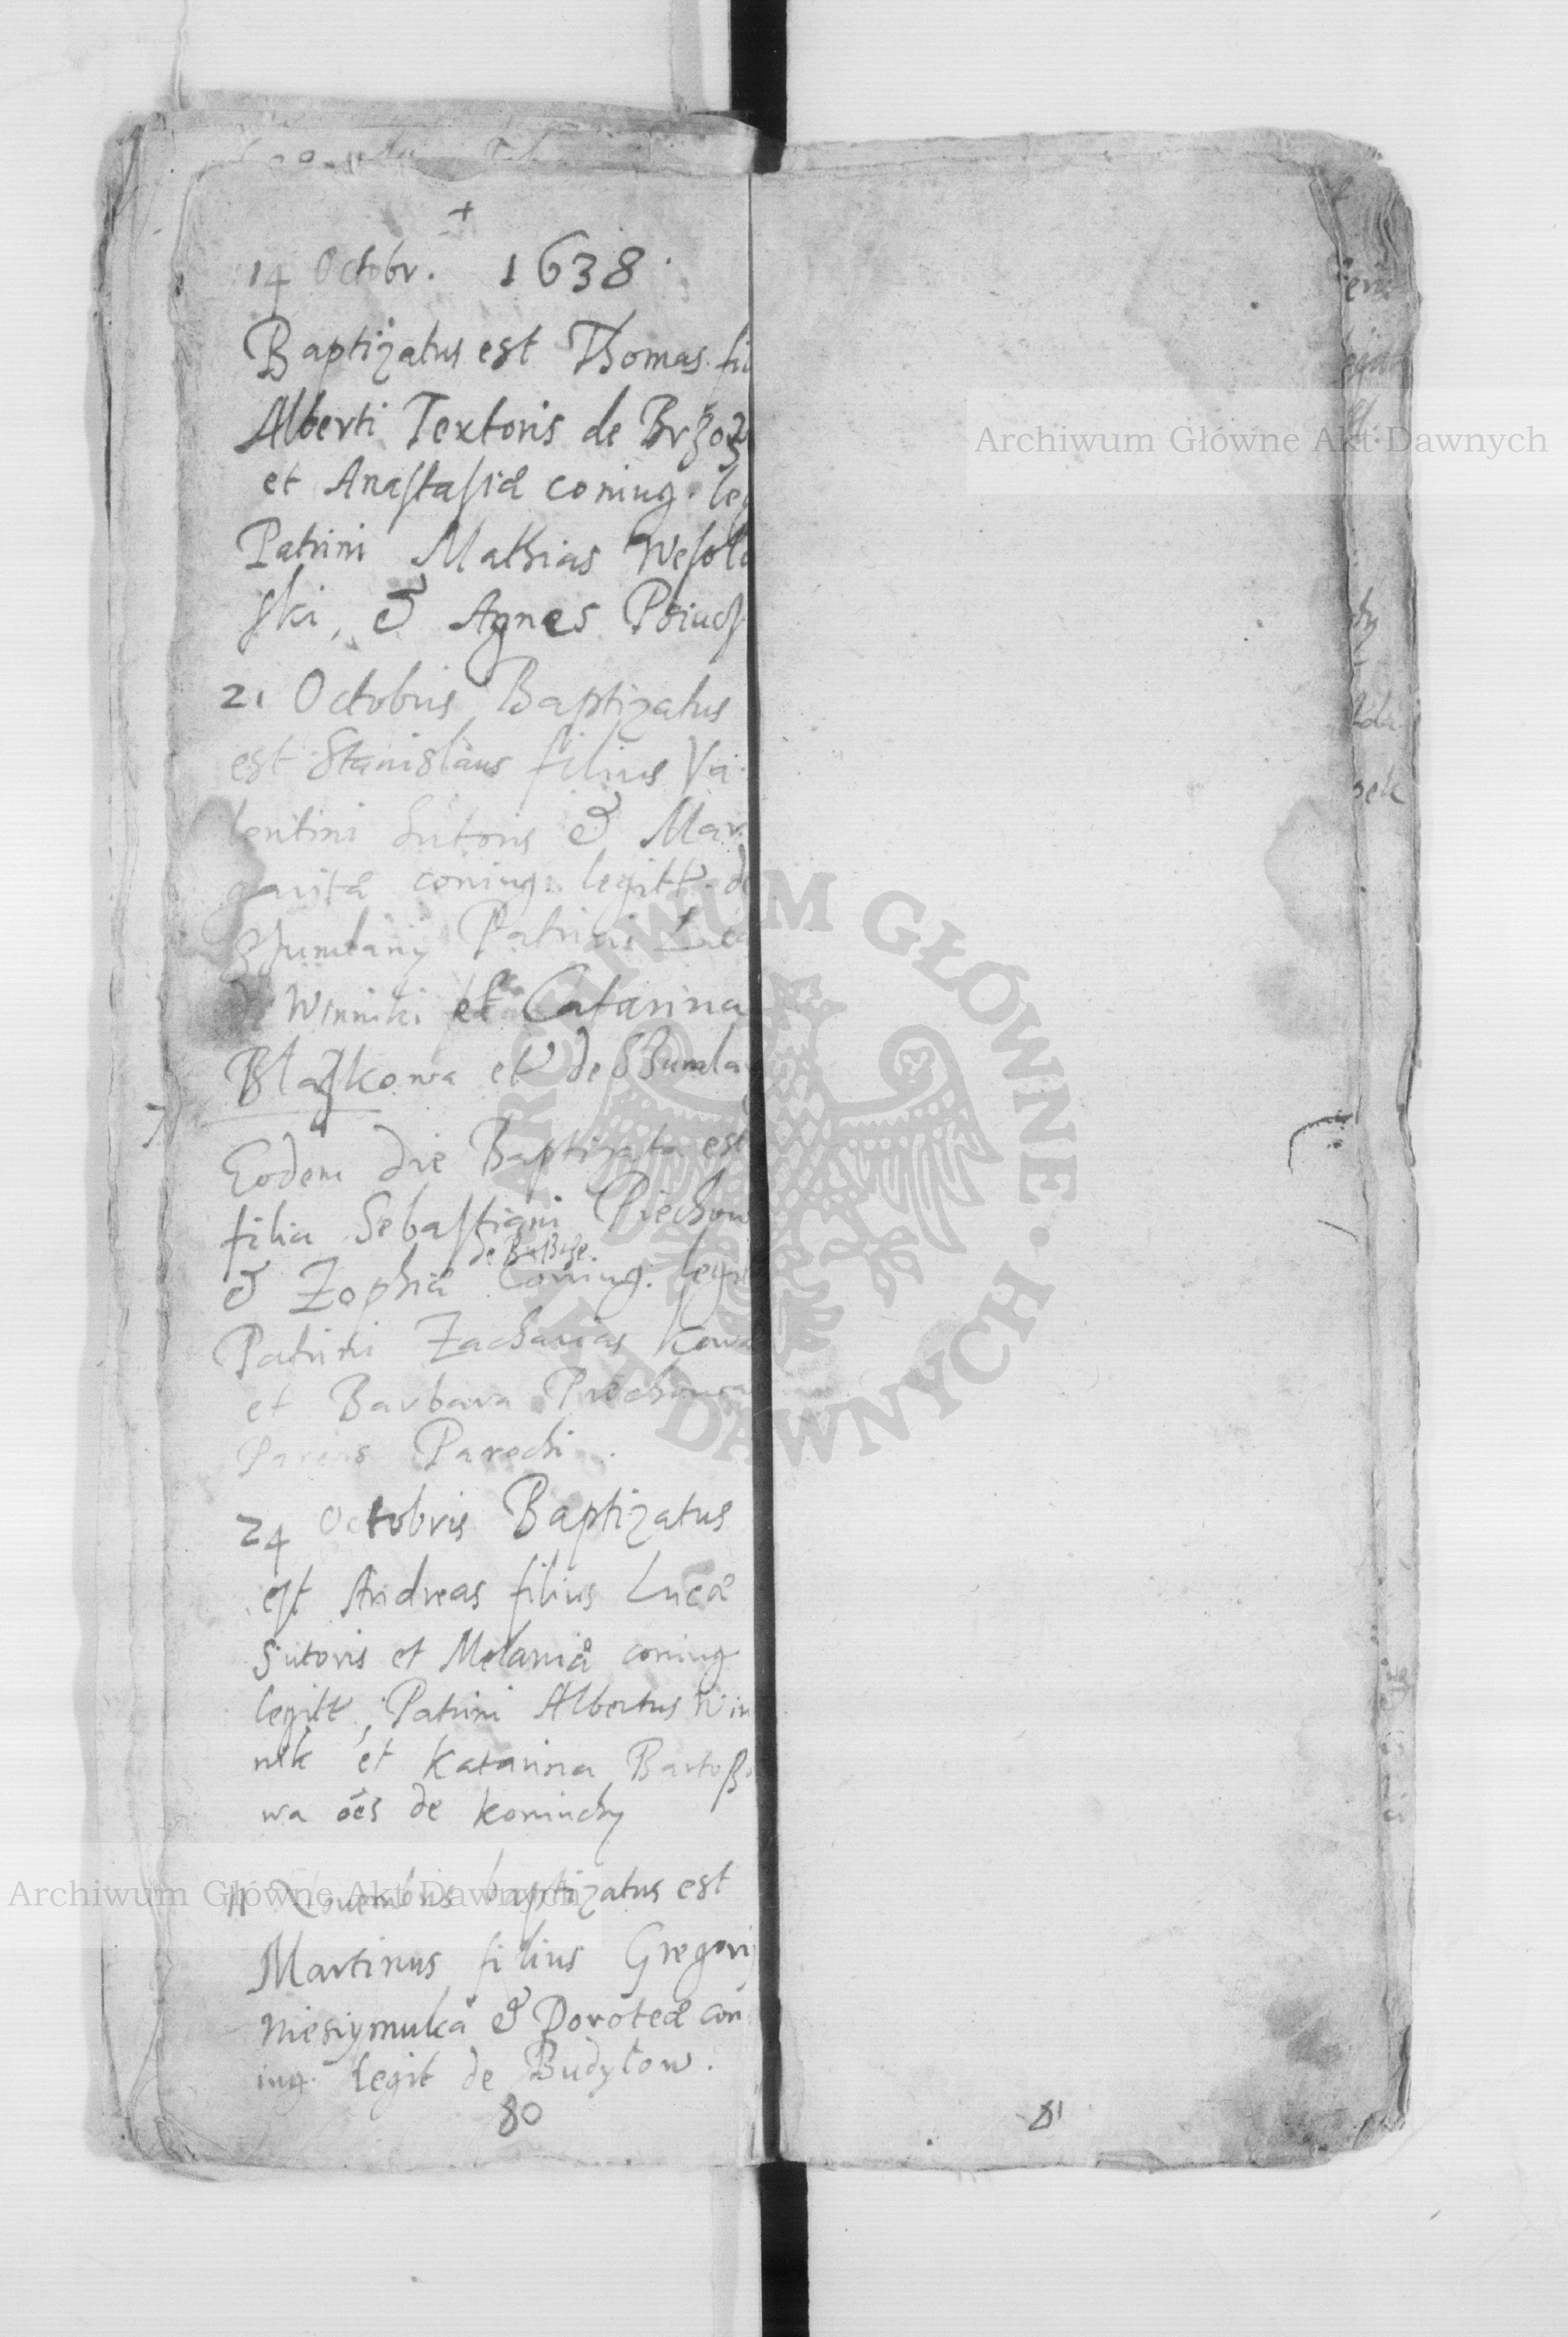 +
14 Octobr. 1638.
Baptizatus est Thomas fil
Alberti Textoris de Brzoz
et Anastasiæ coniug. leg
Patrini Mathias Wesoło
ski, & Agnes
21 Octobris Baptizatus
est Stanislaus filius Va
lentini Sutoris & Mar
garitæ coniug. legitt. de
Patrini Luca
Winniki et Catarina
Błaszkowa et de
Eodem die Baptizata est
filia Sebastiani Piechow
de
& Zophiæ Coniug. legit
Patrini Zacharias Kowa
et Barbara Piechowa
Parens Parochi.
24 Octobris Baptizatus
est Andreas filius Lucæ
Sutoris et Melaniæ coniug
legitt, Patrini Albertus Win
nik et Katarina Bartoß
wa oēs de Koniuchy
11 Nouembris baptizatus est
Martinus filius Gregorij
& Doroteæ con
iug. legit de Budyłow.
80
81
Archiwum Główne Akt Dawnych
Archiwum Główne Akt Dawnych
ARCHIWUM GŁÓWNE AKT DAWNYCH